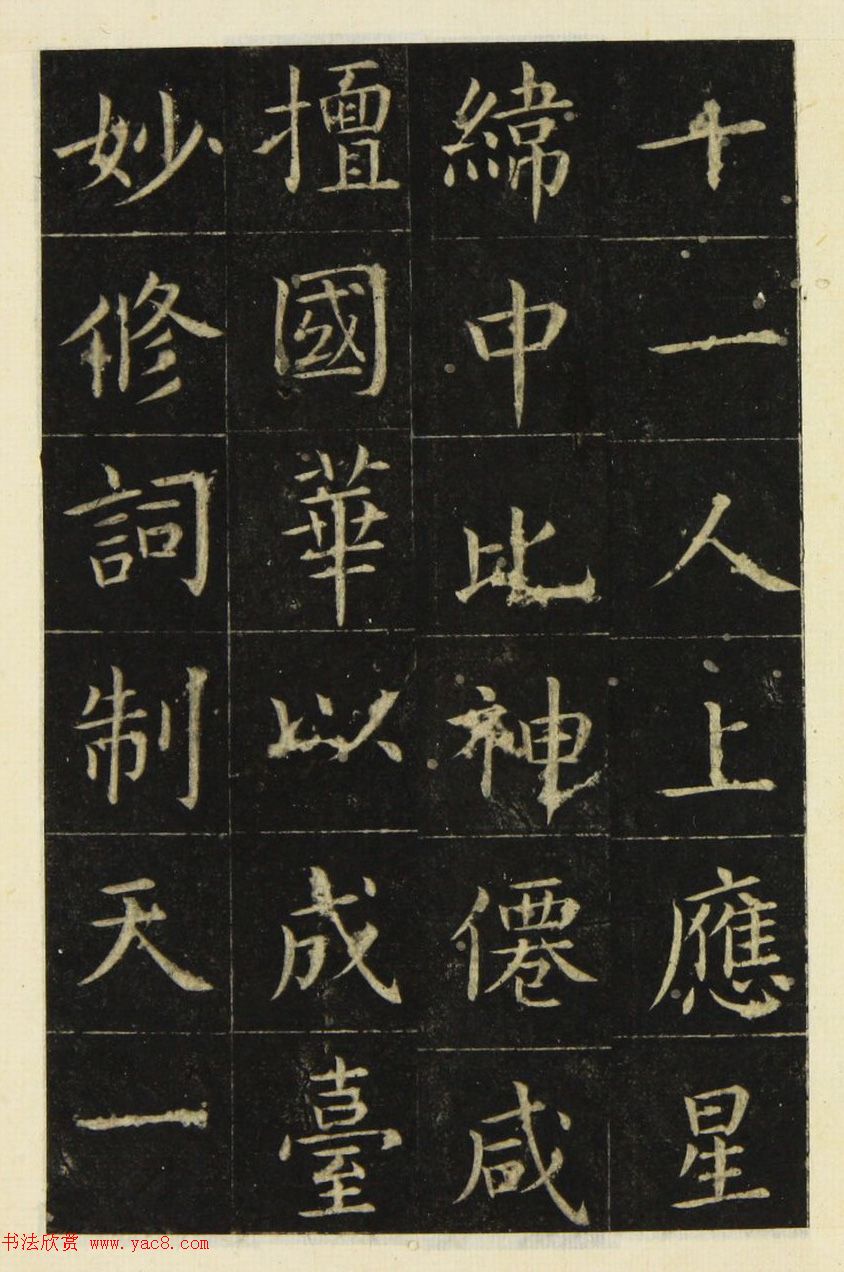 十一人上應星
緯中比神僊咸
擅國華以成臺
妙修詞制天一
书法欣赏 www.yac8.com